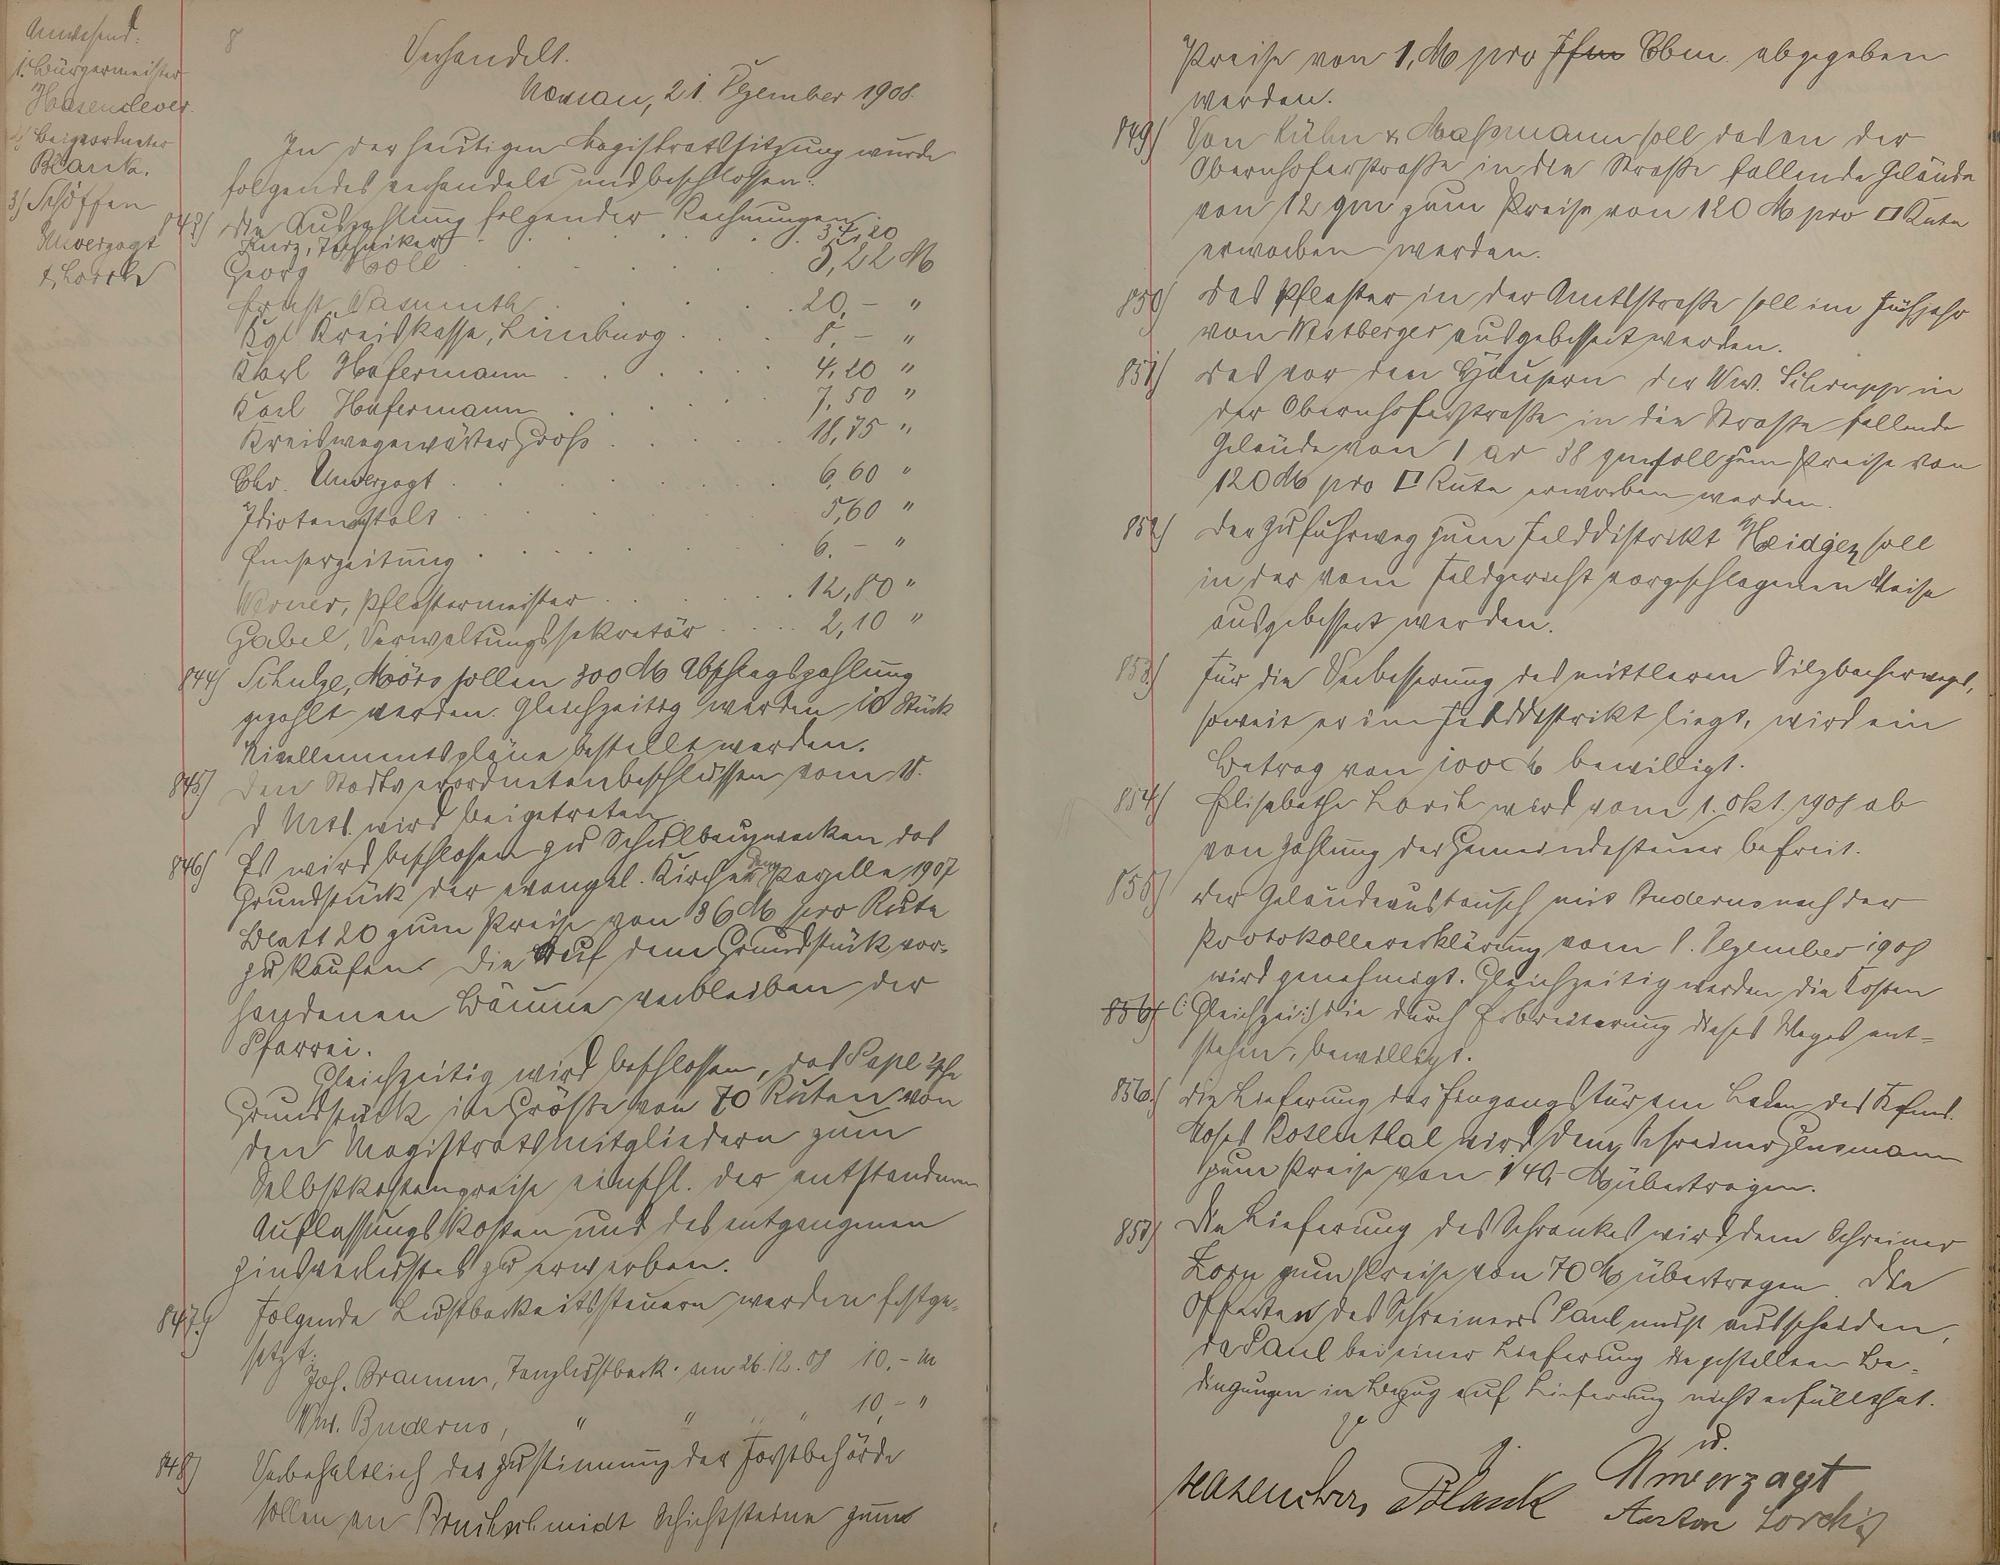 Anwesend:
1. Bürgermeister
Hasenclever
2) Beigeordneter
Blank.
3) Schöffen
Unverzagt
&, Lorch
8
Verhandelt.
Nassau, 21. Dezember 1908.
In der heutigen Magistratssitzung wurde
folgendes verhandelt und beschlossen:
843) Die Auszahlung folgender Rechnungen:
Kurz, Techniker . . . 37,20
Georg Noll . . . 3,22 M
Ernst Wasmuth . . . 20,- "
Kgl. Kreiskasse, Limburg . . . 8,- "
Karl Hafermann . . . 4,20 "
Karl Hafermann . . . 7,50 "
Kreiswegewärter Groß . . . 18,75 "
Chr. Unverzagt . . . 6,60 "
Idiotenanstalt . . . 5,60 "
Emserzeitung . . . 6,- "
Werner, Pflastermeister . . . 12,80 "
Gabel, Verwaltungssekretär . . . 2,10 "
844) Schulze, Mörs sollen 300 M Abschlagszahlung
gezahlt werden. Gleichzeitig werden 10 Stück
Nivellementspläne bestellt werden.
845) Den Stadtverordnetenbeschlüssen vom 18.
d. Mts. wird beigetreten.
846) Es wird beschlossen zu Schulbauzwecken das
Grundstück der evangel. Kirche Parzelle 1907
Blatt 20 zum Preise von 36 M pro Rute
zu kaufen. Die auf dem Grundstück vor-
handenen Bäume verbleiben der
Pfarrei.
Gleichzeitig wird beschlossen, das
Grundstück in Größe von 70 Ruten von
den Magistratsmitgliedern zum
Selbstkostenpreise einschl. der entstandenen
Auflassungskosten und des entgangenen
Zinsverlustes zu erwerben.
847) Folgende Lustbarkeitssteuern werden festge-
setzt:
Joh. Bramm, Tanzlustbark. am 26.12.08 10,- M
Ww. Buderus, " " " " 10,- "
848) Vorbehaltlich der Zustimmung der Forstbehörde
sollen an Schichtsteine zum
Preise von 1, M pro Cbm. abgegeben
werden.
849) Von Kühn & Maßmann soll das an der
Obernhoferstraße in die Straße fallende Gelände
von 12 qm zum Preise von 120 M pro □ Rute
erworben werden.
850) Das Pflaster in der Amtsstraße soll im Frühjahr
von ausgebessert werden.
851) Das vor den Häusern der Ww. Schrupp in
der Obernhoferstraße in die Straße fallende
Gelände von 1 ar 38 qm soll zum Preise von
120 M pro □ Rute erworben werden.
852) Der Zufuhrweg zum Felddistrikt soll
in der vom Feldgericht vorgeschlagenen Weise
ausgebessert werden.
853) Für die Verbesserung des mittleren
soweit er im Felddistrikt liegt, wird ein
Betrag von 100 M bewilligt.
854) Elisabethe Lorch wird vom 1. Okt. 1908 ab
von Zahlung der Gemeindesteuer befreit.
855) Der Geländeaustausch mit Buderus nach der
Protokollerklärung vom 8. Dezember 1908
wird genehmigt. Gleichzeitig werden die Kosten
856) (: Gleichzei :) die durch Erbreiterung dieses Weges ent-
stehen, bewilligt.
856.) Die Lieferung der Eingangstür am Laden des Kfmd.
Moses Rosenthal wird dem Schreiner
zum Preise von 140,- M übertragen.
857) Die Lieferung des Schrankes wird dem Schreiner
Zorn zum Preise von 70 M übertragen. Die
Offerten des Schreiners Paul mußt ausscheiden,
da Paul bei einer Lieferung die gestellten Be-
dingungen in Bezug auf Lieferung nicht erfüllt hat.
g. u.
Hasenclever Blank Unverzagt
Anton Lorch